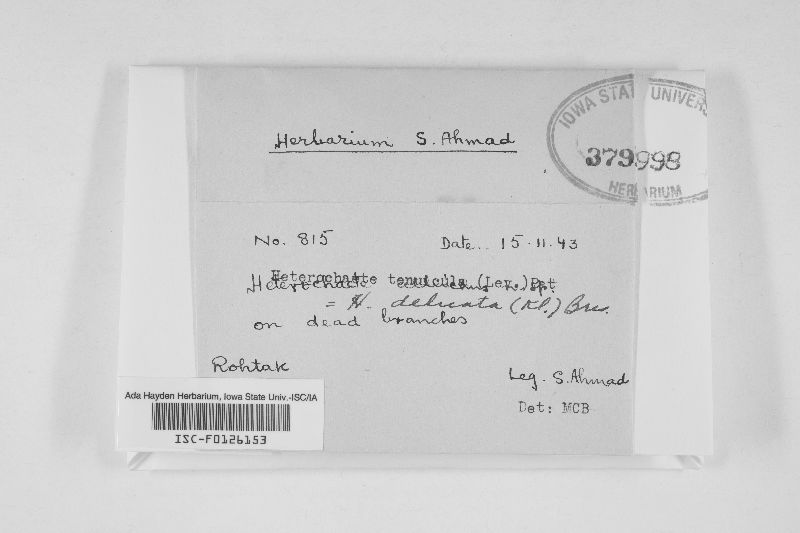 Herbarium S. Ahmad
IOWA STATE UNIVERS
379998
HERBARIUM
No. 815 Date.. 15.11.43
Heterochaete tenuicula (Lev.) Pat
Heterochaete n. sp.
= H. delicata (Kl.) Bres.
on dead branches
Rohtak
Leg. S. Ahmad
Det: MCB
Ada Hayden Herbarium, Iowa State Univ.-ISC/IA
ISC-F0126153